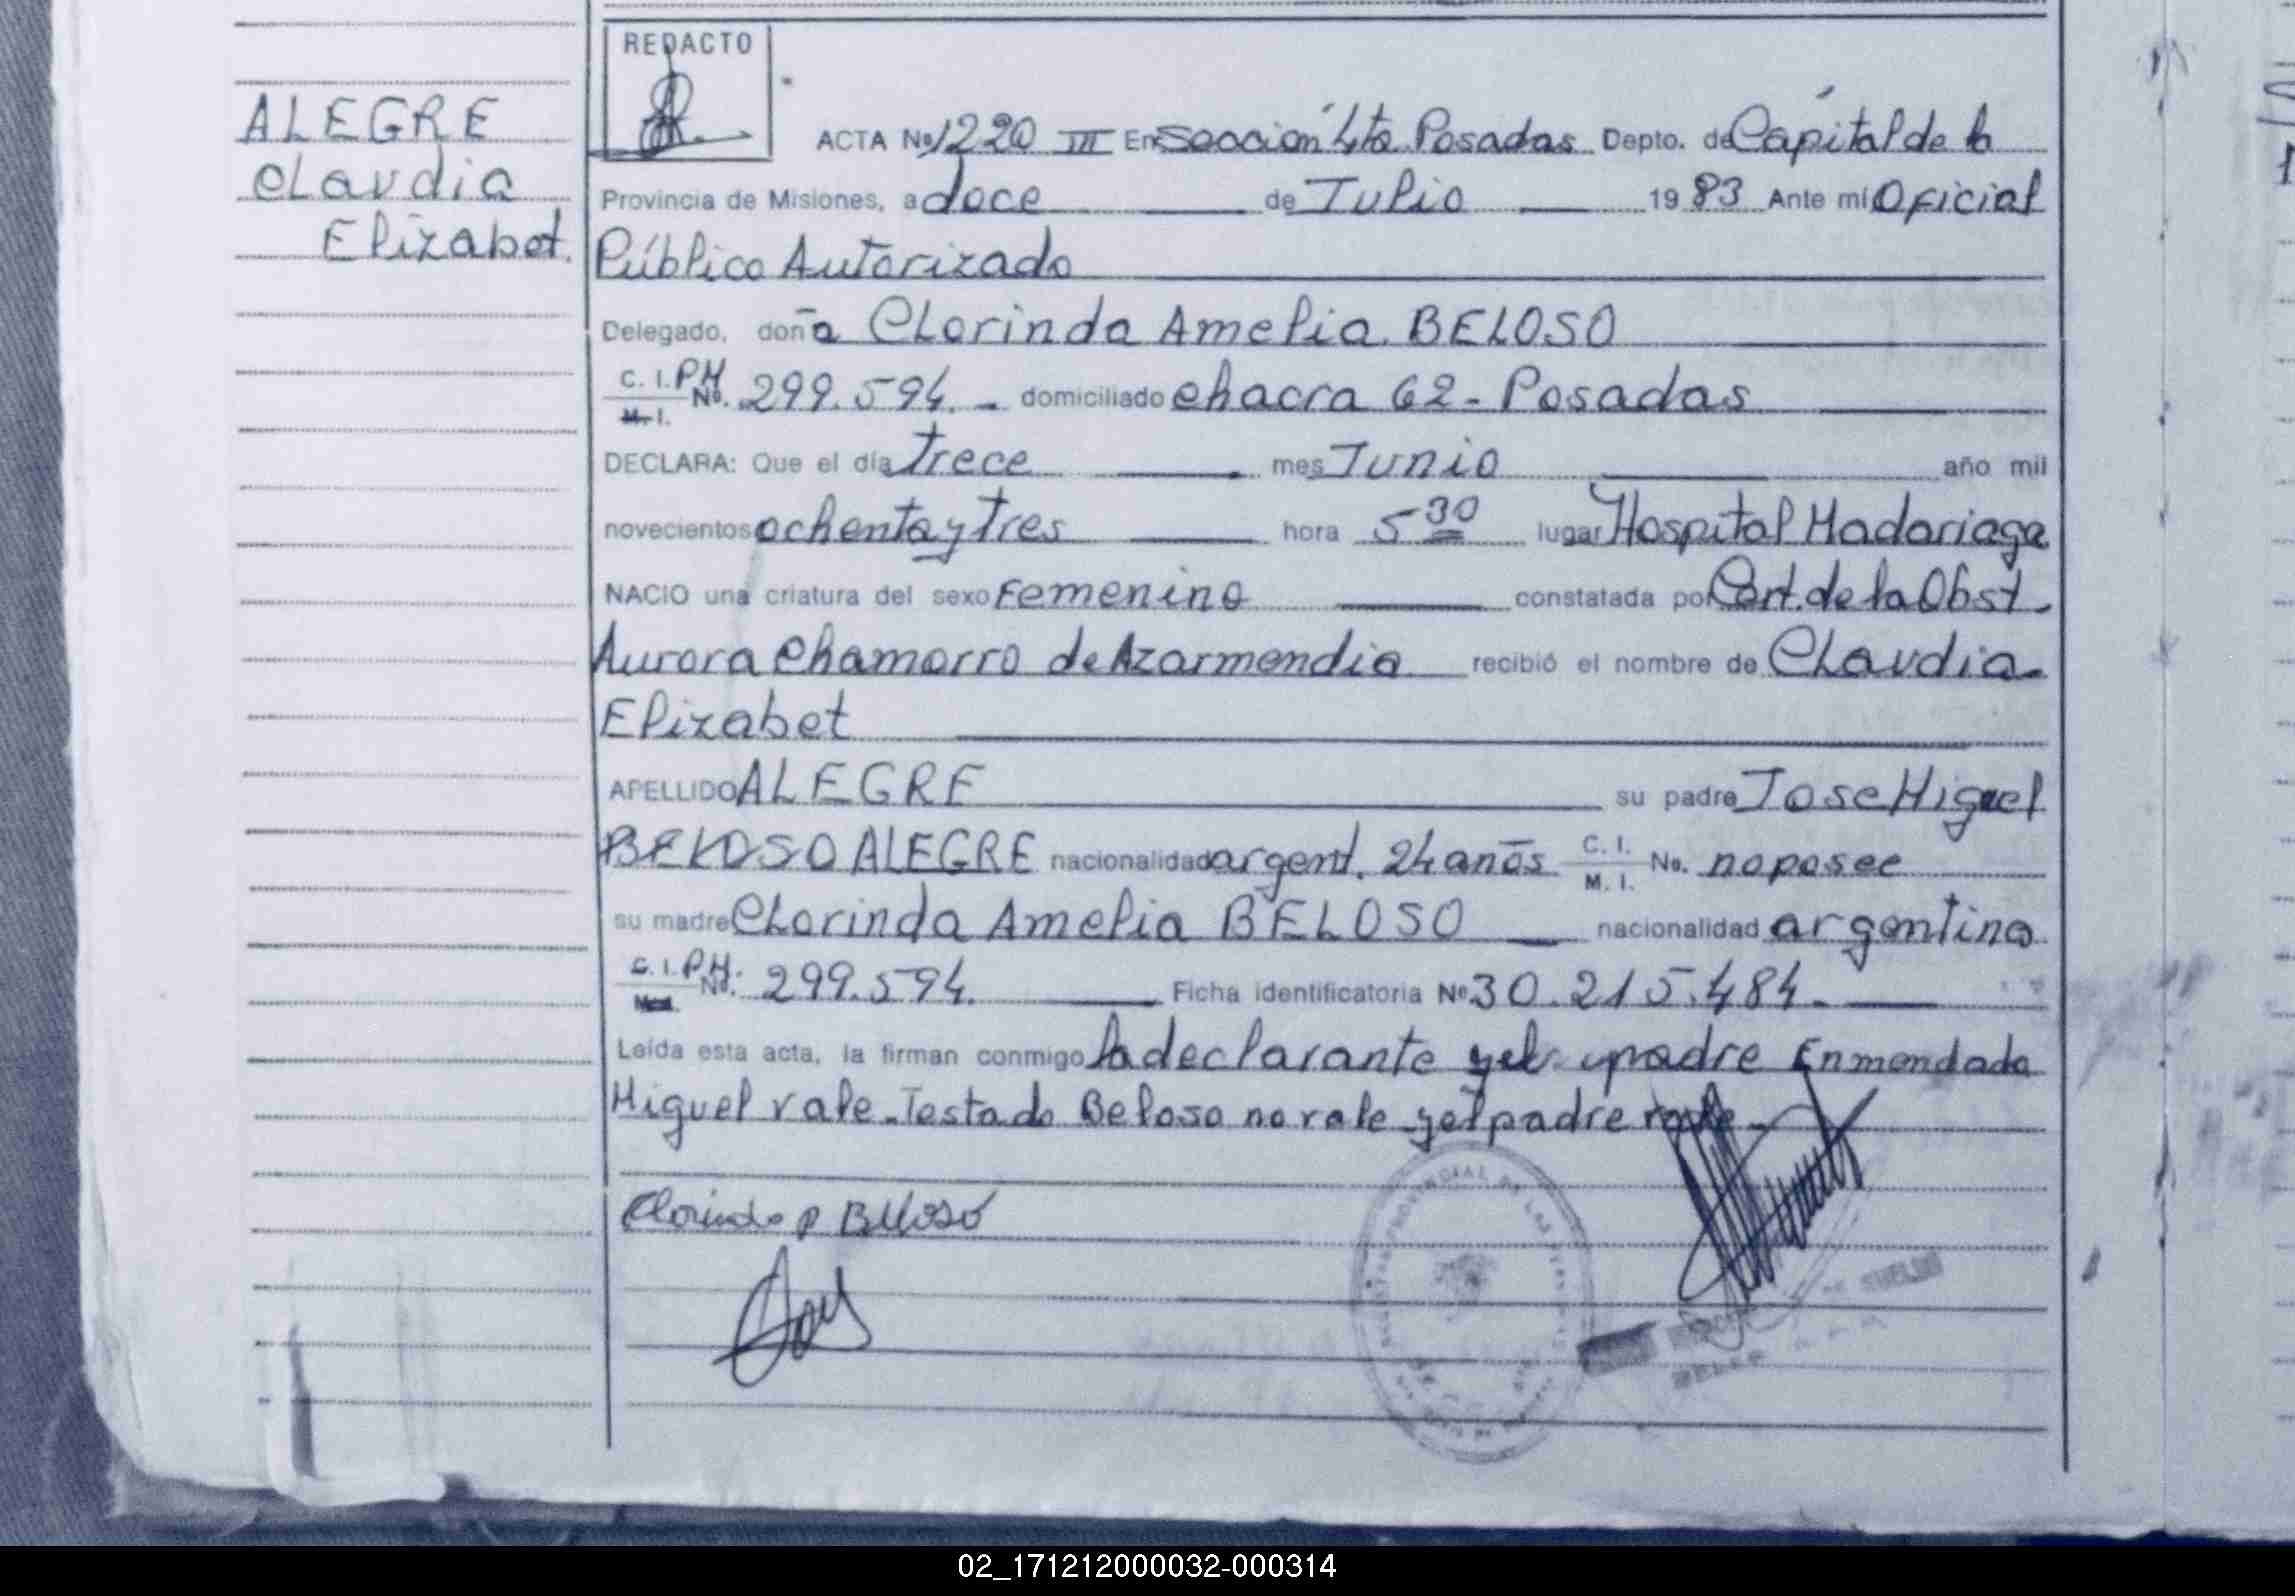 REDACTO
ALEGRE
Claudia
Elizabet.
ACTA No 1220 III En Sección 4ta Posadas Depto. de Capital de la
Provincia de Misiones, a doce de Julio 1983 Ante mí Oficial
Público Autorizado
Delegado, doña Clorinda Amelia BELOSO
C. I. P.M. M. I. No. 299.594.- domiciliado chacra 62 - Posadas
DECLARA: Que el día trece mes Junio año mil
novecientos ochenta y tres hora 5 30 lugar Hospital Madariaga
NACIO una criatura del sexo Femenino constatada por Cert. de la Obst.
Aurora Chamorro de Azarmendia recibió el nombre de Claudia
Elizabet
APELLIDO ALEGRE su padre Jose Miguel
BELOSO ALEGRE nacionalidad argent. 24 años C. I. M. I. No. no posee
su madre Clorinda Amelia BELOSO nacionalidad argentina
C. I. P.M. No. 299.594. Ficha identificatoria No 30.215.484.
Leída esta acta, la firman conmigo la declarante y el padre Enmendado
Miguel vale - Testado Beloso no vale - y el padre vale -
Clorinda A Beloso
02_171212000032-000314